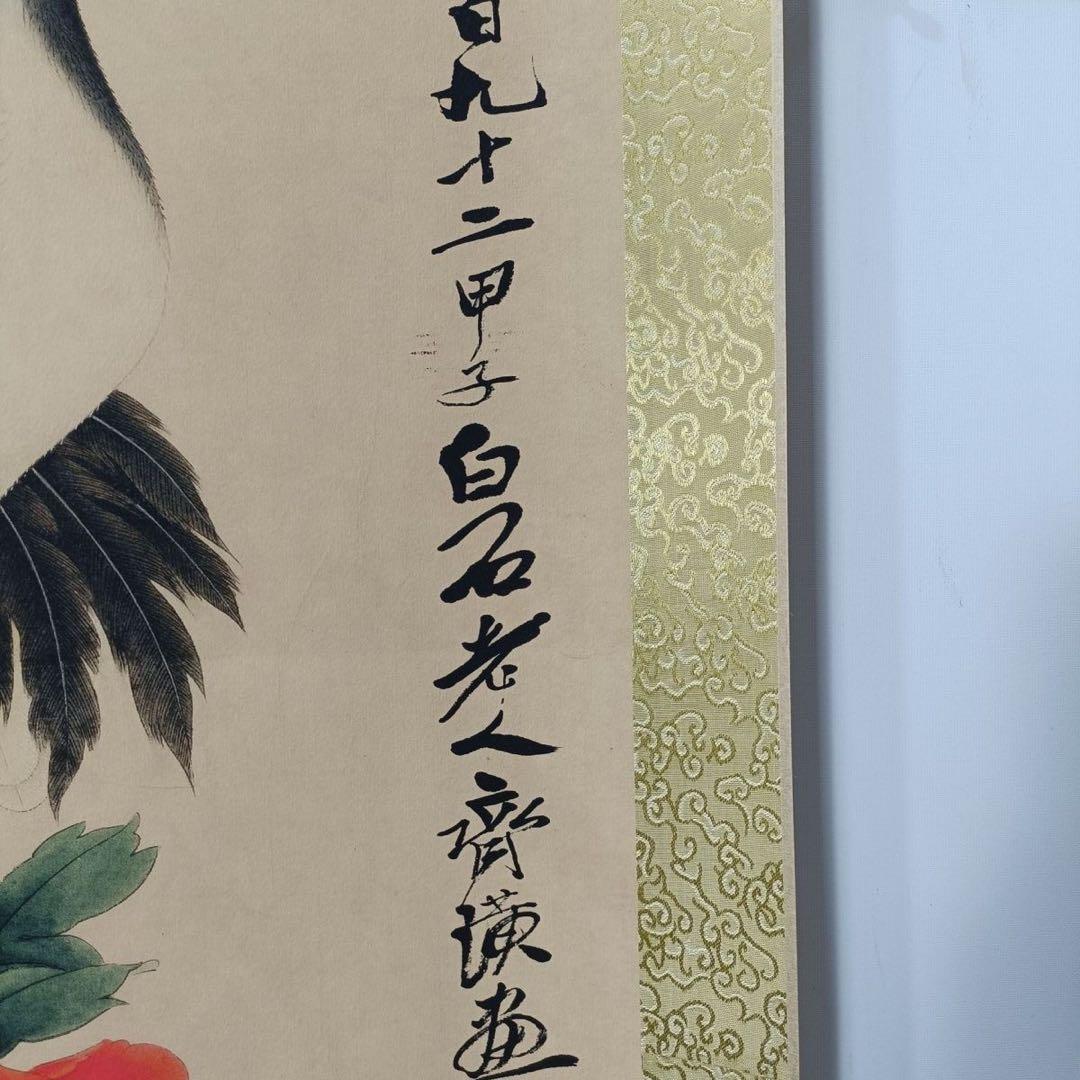 日九十二甲子白石老人齊璜画